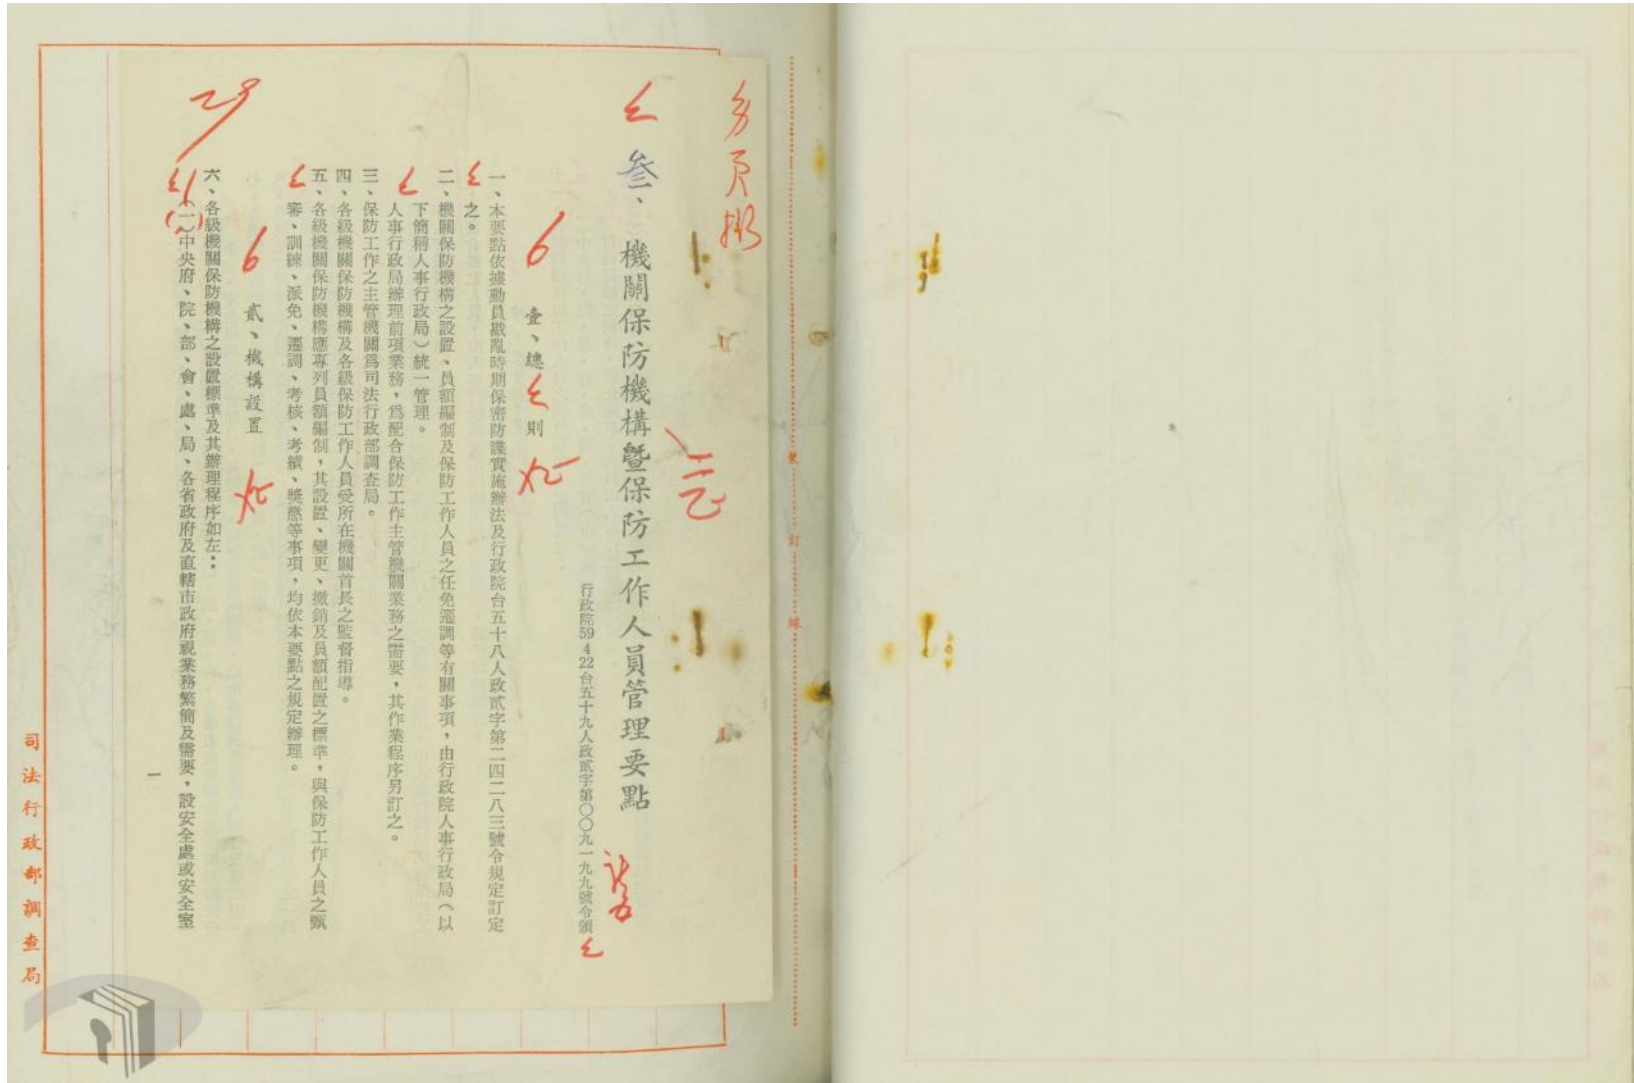 叄、機關保防機構暨保防工作人員管理要點
行政院59 4 22台五十九人政貳字第〇〇九一九九號令頒
壹、總則
一、本要點依據動員戡亂時期保密防諜實施辦法及行政院台五十八人政貳字第二四二八三號令規定訂定
之。
二、機關保防機構之設置、員額編制及保防工作人員之任免遷調等有關事項，由行政院人事行政局（以
下簡稱人事行政局）統一管理。
人事行政局辦理前項業務，爲配合保防工作主管機關業務之需要，其作業程序另訂之。
三、保防工作之主管機關爲司法行政部調查局。
四、各級機關保防機構及各級保防工作人員受所在機關首長之監督指導。
五、各級機關保防機構應專列員額編制，其設置、變更、撤銷及員額配置之標準，與保防工作人員之甄
審、訓練、派免、遷調、考核、考績、獎懲等事項，均依本要點之規定辦理。
貳、機構設置
六、各級機關保防機構之設置標準及其辦理程序如左：
（一）中央府、院、部、會、處、局、各省政府及直轄市政府視業務繁簡及需要，設安全處或安全室
一
裝
訂
線
司法行政部調查局